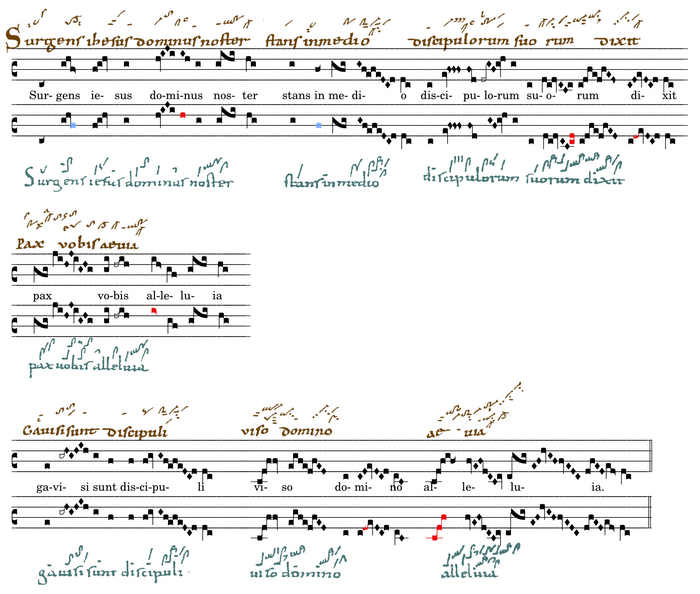 Surgens ihesus dominus noster stans in medio discipulorum suo rum dixit
Sur- gens ie- sus do-mi-nus nos- ter stans in me- di- o dis-ci- pu- lo-rum su- o- rum di- xit
Surgens iesus dominus noster stans in medio discipulorum suorum dixit
Pax vobis aevia
pax vo-bis al-le- lu- ia
pax vobis alleluia
Gavisi sunt discipuli viso domino ae - uia
ga-vi- si sunt dis-ci-pu- li vi- so do- mi- no al- le- lu- ia.
gavisi sunt discipuli viso domino alleluia